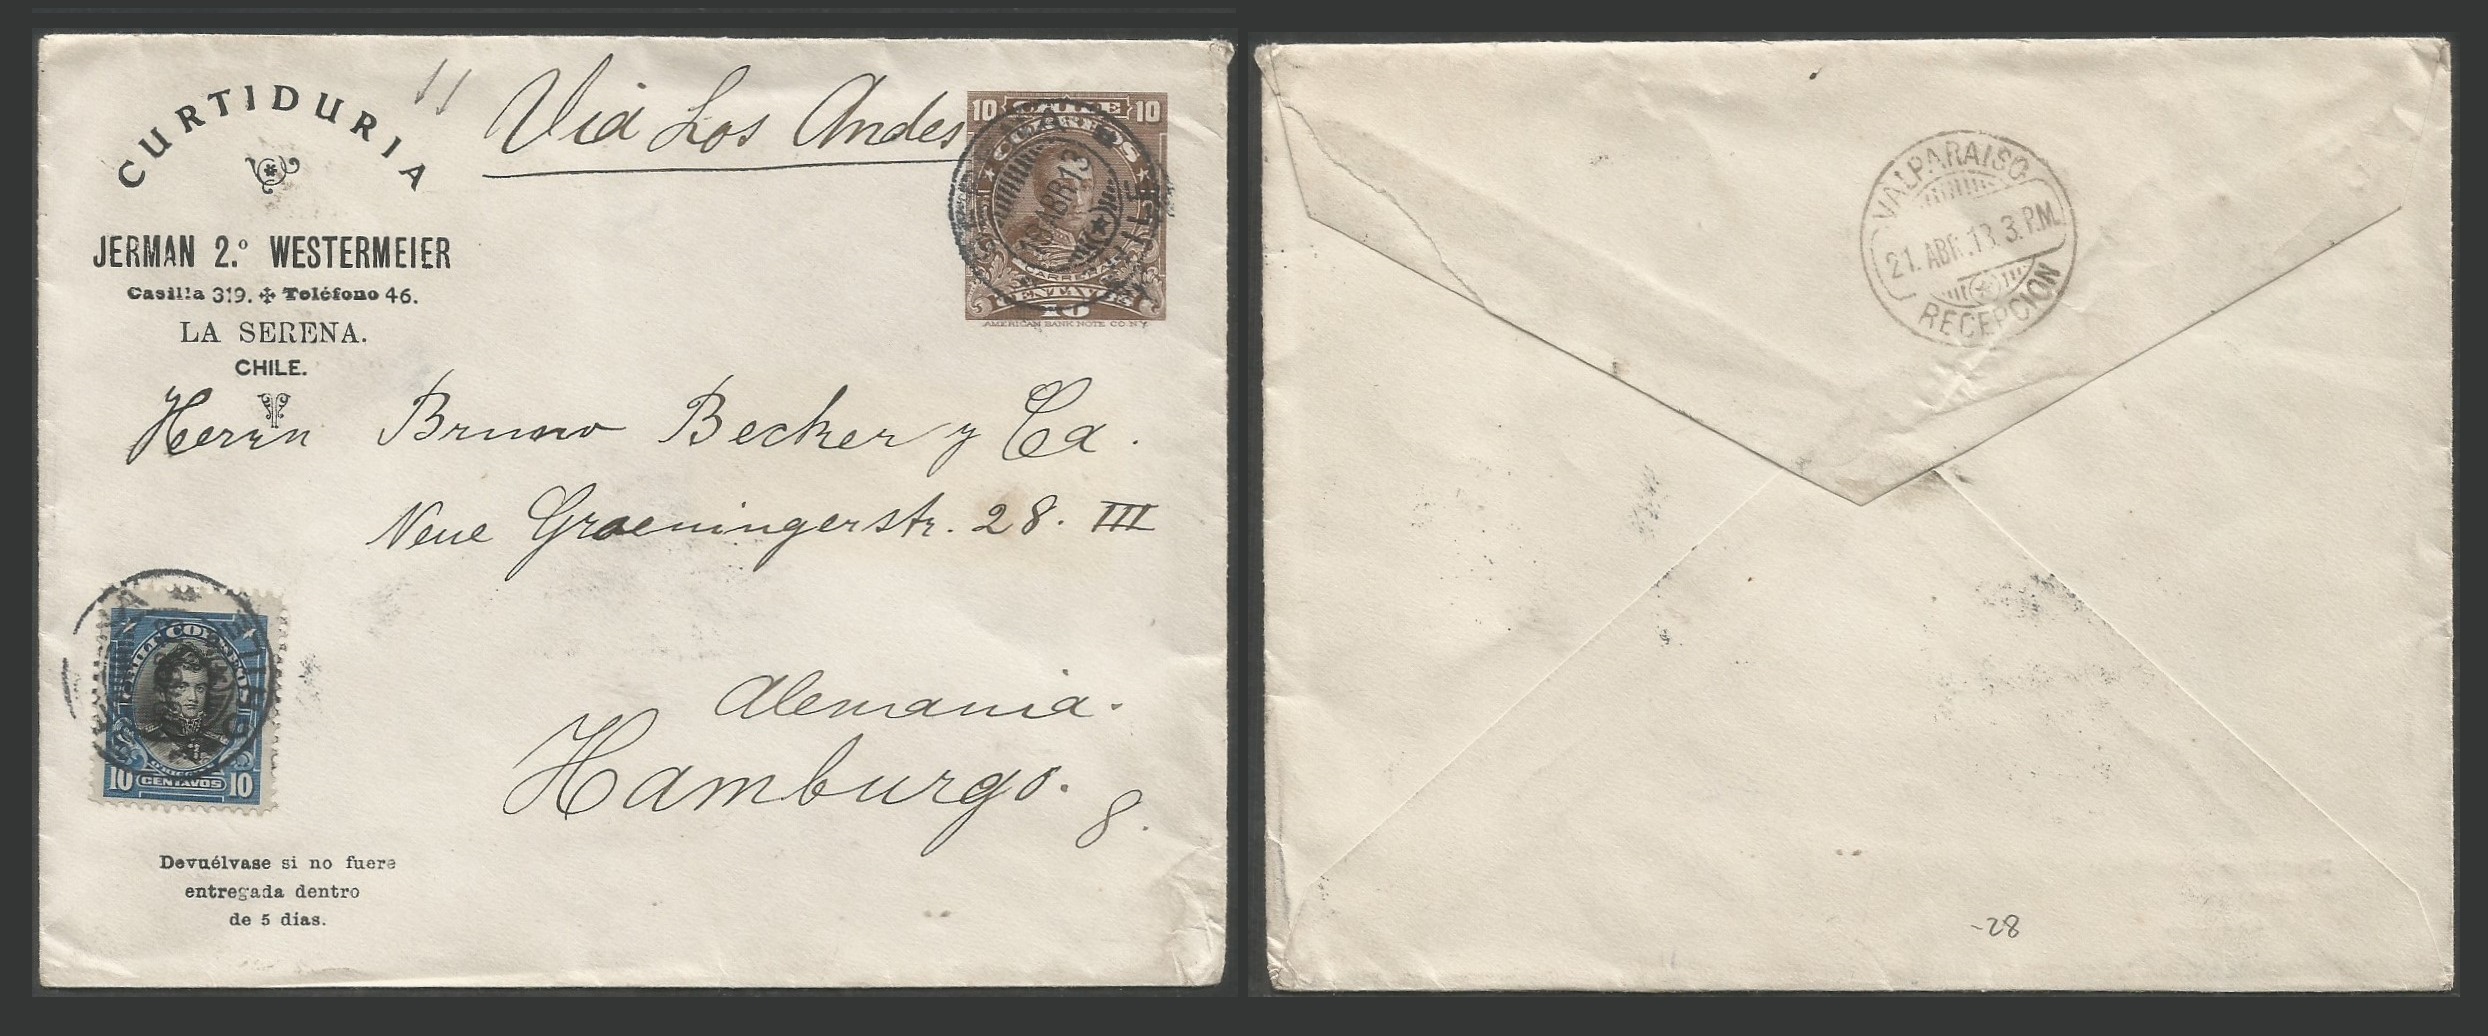 CURTIDURIA
JERMAN 2.º WESTERMEIER
Casilla 319. ✠ Teléfono 46.
LA SERENA.
CHILE.
Via Los Andes
10 CHILE 10
CORREOS
19 ABR 13
CENTAVOS
10
AMERICAN BANK NOTE CO. N.Y.
Herrn Bruno Becker y Ca.
Neue Groeningerstr. 28. III
Alemania.
Hamburgo.
8.
CHILE CORREOS
10 CENTAVOS 10
Devuélvase si no fuere
entregada dentro
de 5 dias.
VALPARAISO
21. ABR. 13. 3 P.M.
RECEPCION
-28